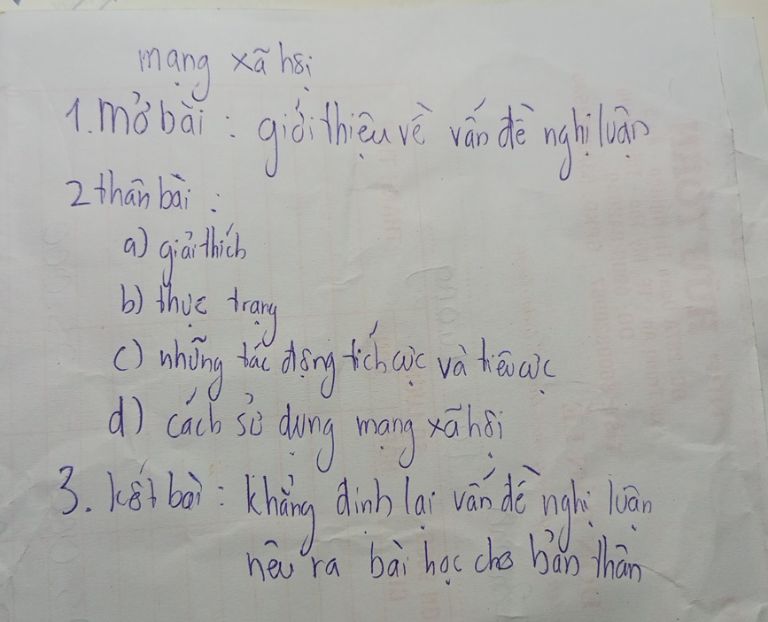 mạng xã hội
1. mở bài : giới thiệu về vấn đề nghị luận
2 thân bài :
a) giải thích
b) thực trạng
c) những tác động tích cực và tiêu cực
d) cách sử dụng mạng xã hội
3. kết bài : khẳng định lại vấn đề nghị luận
nêu ra bài học cho bản thân